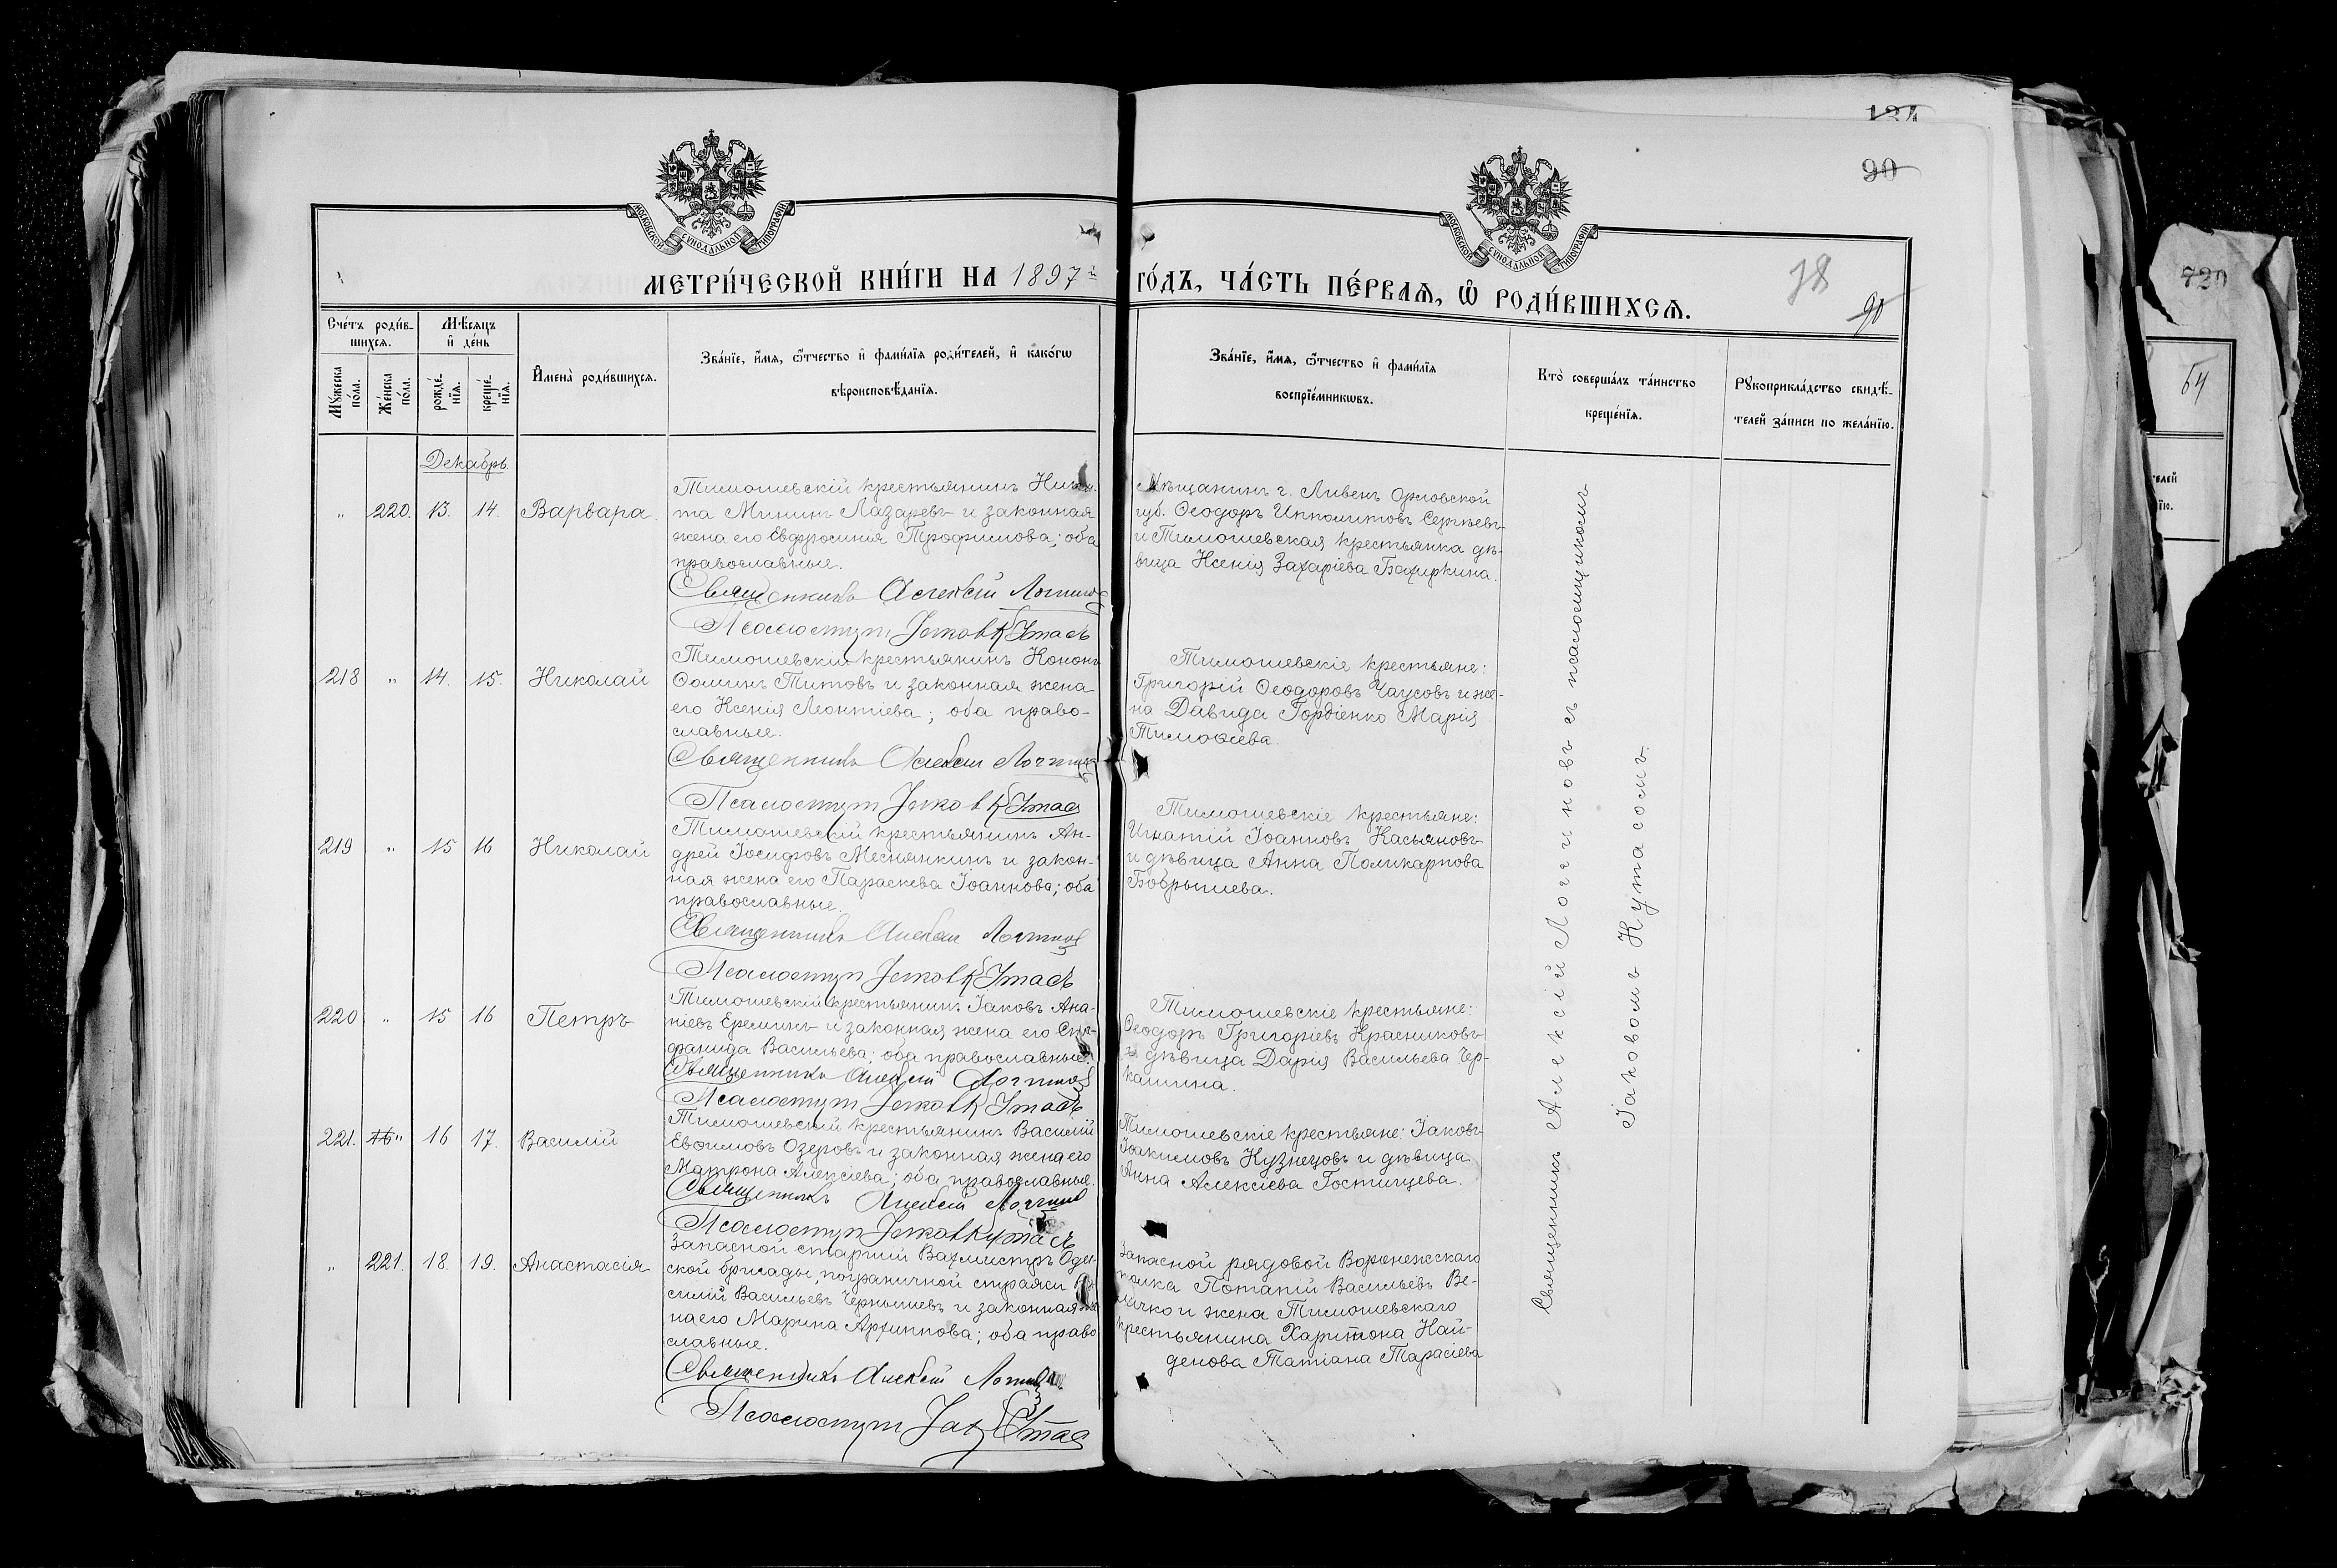 134
90
МОСКОВСКОЙ СѴНОДАЛЬНОЙ ТИПОГРАФІИ
МОСКОВСКОЙ СѴНОДАЛЬНОЙ ТИПОГРАФІИ
МЕТРИ́ЧЕСКОЙ КНИ́ГИ НА 1897 г.
ГО́ДЪ, ЧА́СТЬ ПЕ́РВАѦ, Ѿ РОДИ́ВШИХСѦ.
78
90
Сче́тъ роди́в-
шихсѧ.
Мѣ́сѧцъ
и҆ де́нь
Мꙋ́жеска
по́ла.
Же́нска
по́ла.
рожде́-
нїѧ.
креще́-
нїѧ.
И҆мена̀ роди́вшихсѧ.
Зва́нїе, и҆́мѧ, ѻ҆́тчество и҆ фами́лїѧ роди́телей, и҆ како́гѡ
вѣроисповѣ́данїѧ.
Зва́нїе, и҆́мѧ, ѻ҆́тчество и҆ фами́лїѧ
воспрїе́мникѡвъ.
Кто̀ соверша́лъ та́инство
креще́нїѧ.
Рꙋкоприкла́дство свидѣ́-
телей за́писи по жела́нїю.
Декабрь.
„ 220. 13. 14. Варвара.
Тимошевскій крестьянинъ Ники-
та Мининъ Лазаревъ и законная
жена его Евфросинія Трофимова; оба
православные.
Священникъ Алексѣй Логиновъ
Псаломщ Іаковъ Кутасъ
Мѣщанинъ г. Ливенъ Орловской
губ. Ѳеодоръ Ипполитовъ Сергѣевъ
и Тимошевская крестьянка дѣ-
вица Ксенія Захаріева Бахиркина.
218 „ 14. 15. Николай
Тимошевскій крестьянинъ Кононъ
Ѳоминъ Титовъ и законная жена
его Ксенія Леонтіева; оба право-
славные.
Священникъ Алексѣй Логиновъ
Псаломщ Іаковъ Кутасъ
Тимошевскіе крестьяне:
Григорій Ѳеодоровъ Чаусовъ и же-
на Давида Гордіенко Марія
Тимоѳеева.
219 „ 15 16 Николай
Тимошевскій крестьянинъ Ан-
дрей Іосифовъ Меснянкинъ и закон-
ная жена его Параскева Іоаннова; оба
православные.
Священникъ Алексѣй Логиновъ
Псаломщ Іаковъ Кутасъ
Тимошевскіе крестьяне:
Игнатій Іоанновъ Касьяновъ
и дѣвица Анна Поликарпова
Бобрышева.
220 „ 15 16 Петръ
Тимошевскій крестьянинъ Іаковъ Ана-
ніевъ Ереминъ и законная жена его
Васильева; оба православные.
Священникъ Алексѣй Логиновъ
Псаломщ Іаковъ Кутасъ
Тимошевскіе крестьяне:
Ѳеодоръ Григоріевъ Красниковъ
и дѣвица Дарія Васильева Чер-
кашина.
221. „ 16 17. Василій
Тимошевскій крестьянинъ Василій
Евѳимовъ Озеровъ и законная жена его
Матрона Алексіева; оба православные.
Священникъ Алексѣй Логиновъ
Псаломщ Іаковъ Кутасъ
Тимошевскіе крестьяне: Іаковъ
Іоакимовъ Кузнецовъ и дѣвица
Анна Алексіева Гостищева.
„ 221. 18. 19. Анастасія
Запасной старшій Вахмистръ Одес-
ской бригады, пограничной стражи Ва-
силій Васильевъ Чернышевъ и законная же-
на его Марина Архиппова; оба право-
славные.
Священникъ Алексѣй Логиновъ
Псаломщ Іак Кутас
Запасной рядовой Воронежскаго
полка Потапій Васильевъ Ве-
личко и жена Тимошевскаго
крестьянина Харитона Най-
денова Татіана Тарасіева
Священникъ Алексій Логгиновъ съ псаломщикомъ
Іаковомъ Кутасомъ.
720
64